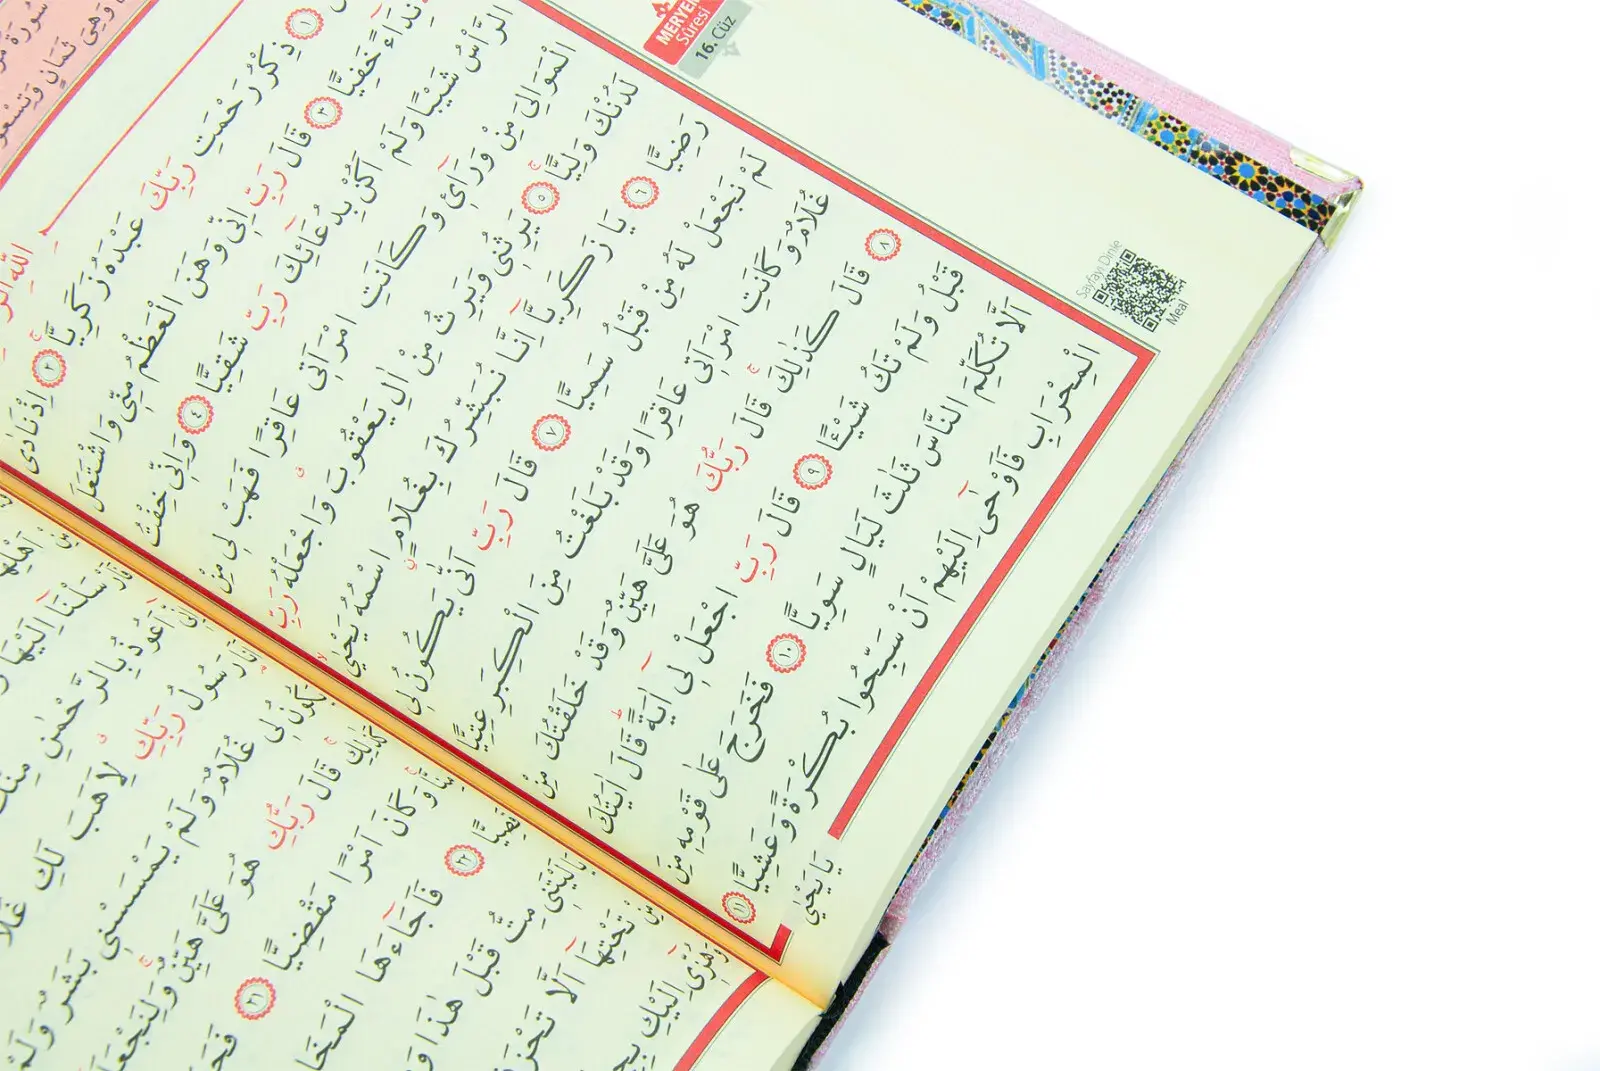 MERYEM
Sûresi
16. Cüz
وَهِيَ ثَمَانٍ وَتِسْعُو
اللّٰهِ
١ ذِكْرُ رَحْمَتِ رَبِّكَ عَبْدَهُ زَكَرِيَّا ٢ اِذْ نَادٰى
نِدَٓاءً خَفِيًّا ٣ قَالَ رَبِّ اِنّ۪ى وَهَنَ الْعَظْمُ مِنّ۪ى وَاشْتَعَلَ
الرَّأْسُ شَيْبًا وَلَمْ اَكُنْ بِدُعَٓائِكَ رَبِّ شَقِيًّا ٤ وَاِنّ۪ى خِفْتُ
الْمَوَالِىَ مِنْ وَرَٓائ۪ى وَكَانَتِ امْرَاَت۪ى عَاقِرًا فَهَبْ ل۪ى مِنْ
لَدُنْكَ وَلِيًّا ٥ يَرِثُن۪ى وَيَرِثُ مِنْ اٰلِ يَعْقُوبَ وَاجْعَلْهُ رَبِّ
رَضِيًّا ٦ يَا زَكَرِيَّٓا اِنَّا نُبَشِّرُكَ بِغُلَامٍ اسْمُهُ يَحْيٰى
لَمْ نَجْعَلْ لَهُ مِنْ قَبْلُ سَمِيًّا ٧ قَالَ رَبِّ اَنّٰى يَكُونُ ل۪ى
غُلَامٌ وَكَانَتِ امْرَاَت۪ى عَاقِرًا وَقَدْ بَلَغْتُ مِنَ الْكِبَرِ عِتِيًّا
٨ قَالَ كَذٰلِكَ قَالَ رَبُّكَ هُوَ عَلَىَّ هَيِّنٌ وَقَدْ خَلَقْتُكَ مِنْ
قَبْلُ وَلَمْ تَكُ شَيْـًٔا ٩ قَالَ رَبِّ اجْعَلْ ل۪ٓى اٰيَةً قَالَ اٰيَتُكَ
اَلَّا تُكَلِّمَ النَّاسَ ثَلٰثَ لَيَالٍ سَوِيًّا ١٠ فَخَرَجَ عَلٰى قَوْمِه۪ مِنَ
الْمِحْرَابِ فَاَوْحٰٓى اِلَيْهِمْ اَنْ سَبِّحُوا بُكْرَةً وَعَشِيًّا ١١
يَا يَحْيٰى
Sayfayı Dinle
Meal
اَهْلِهَا
اَرْسَلْنَٓا اِلَيْهَا
اِنّ۪ٓى اَعُوذُ بِالرَّحْمٰنِ مِنْكَ
اَنَا رَسُولُ رَبِّكِ لِاَهَبَ لَكِ
يَكُونُ ل۪ى غُلَامٌ وَلَمْ يَمْسَسْن۪ى بَشَرٌ وَلَمْ
كَذٰلِكِ قَالَ رَبُّكِ هُوَ عَلَىَّ هَيِّنٌ وَلِنَجْعَلَ
وَكَانَ اَمْرًا مَقْضِيًّا ٢١
٢٢ فَاَجَٓاءَهَا الْمَخَا
يَا لَيْتَن۪ى مِتُّ قَبْلَ هٰذَا
تَحْتِهَٓا اَلَّا
وَهُزّ۪ٓى اِلَيْكِ